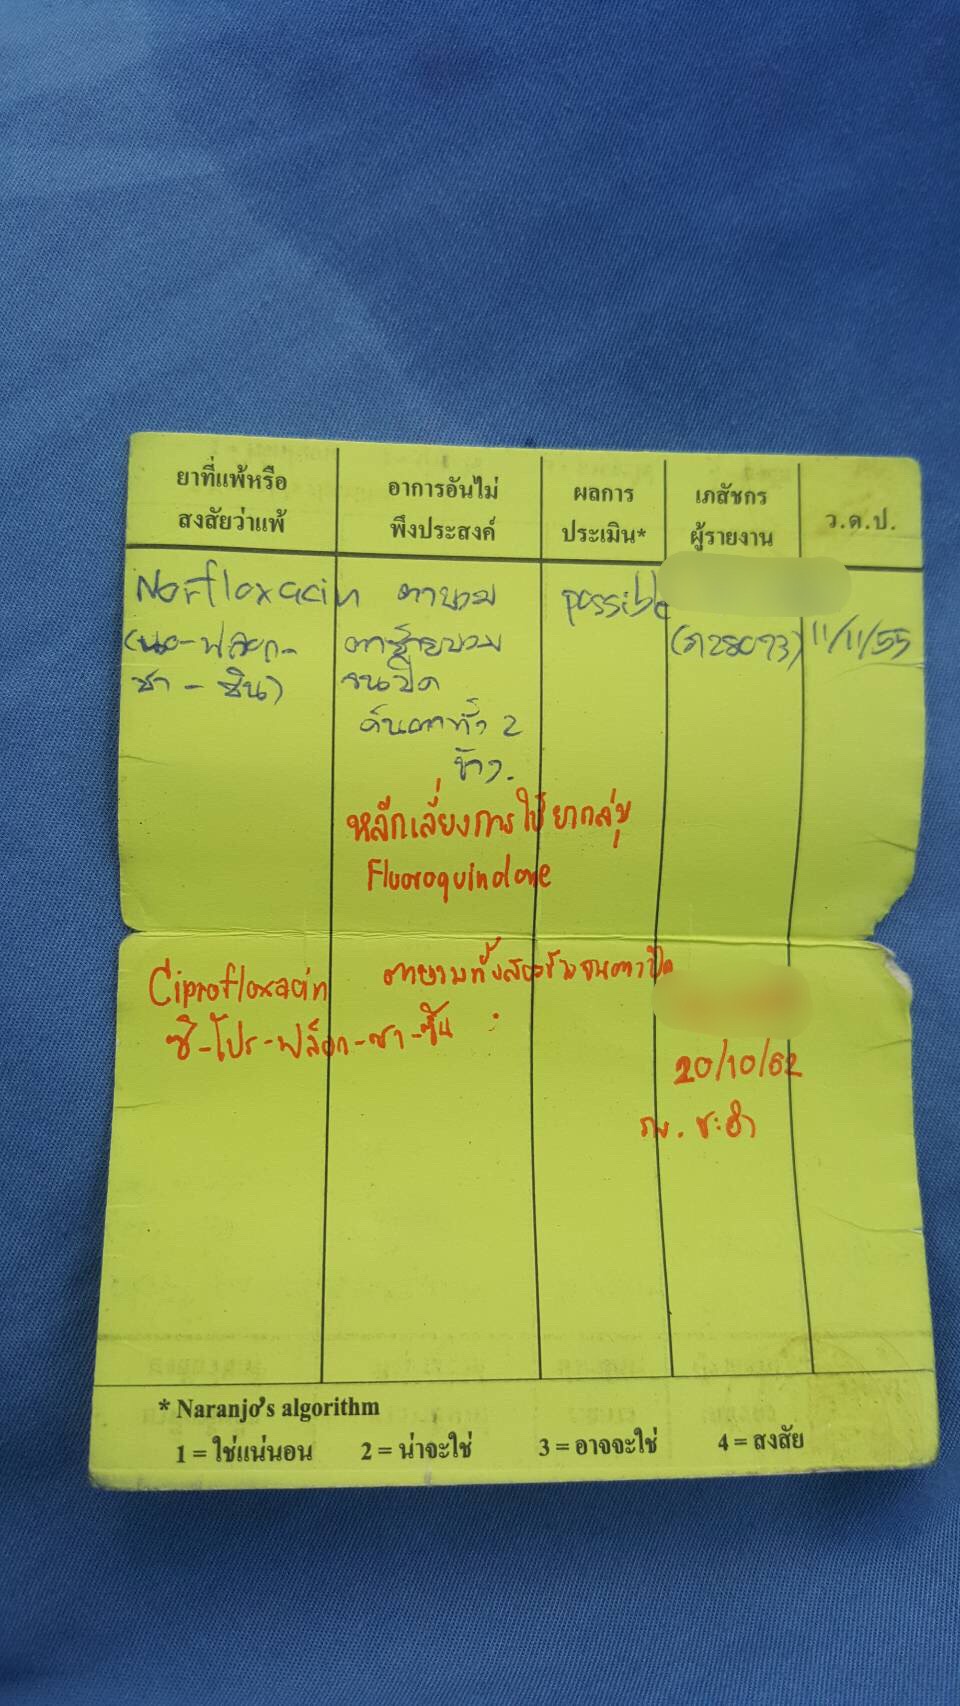 ยาที่แพ้หรือ
สงสัยว่าแพ้
อาการอันไม่
พึงประสงค์
ผลการ
ประเมิน*
เภสัชกร
ผู้รายงาน
ว.ด.ป.
Norfloxacin ตาบวม possible
(นอ-ฟลอก- ตาซ้ายบวม (ภ28073) 11/11/55
ซา-ซิน) จนปิด
คันตาทั้ง 2
ข้าง.
หลีกเลี่ยงการใช้ยากลุ่ม
Fluoroquinolone
Ciprofloxacin ตาบวมทั้งสองข้างจนตาปิด
ซิ-โปร-ฟล็อก-ซา-ซิน
20/10/62
รพ. ชะอำ
* Naranjo's algorithm
1 = ใช่แน่นอน 2 = น่าจะใช่ 3 = อาจจะใช่ 4 = สงสัย